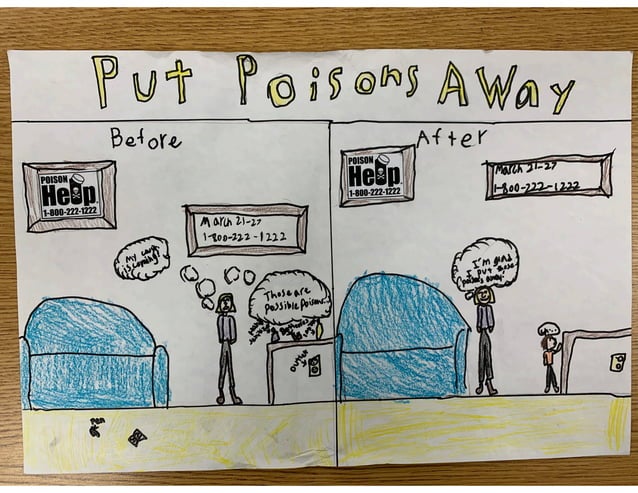 Put Poisons Away
Before
POISON
Help
1-800-222-1222
March 21-27
1-800-222-1222
My
is coming!
Those are
possible Poisons
outlet
Pen
After
POISON
Help
1-800-222-1222
March 21-27
1-800-222-1222
I'm glad
I put these
poisons away!